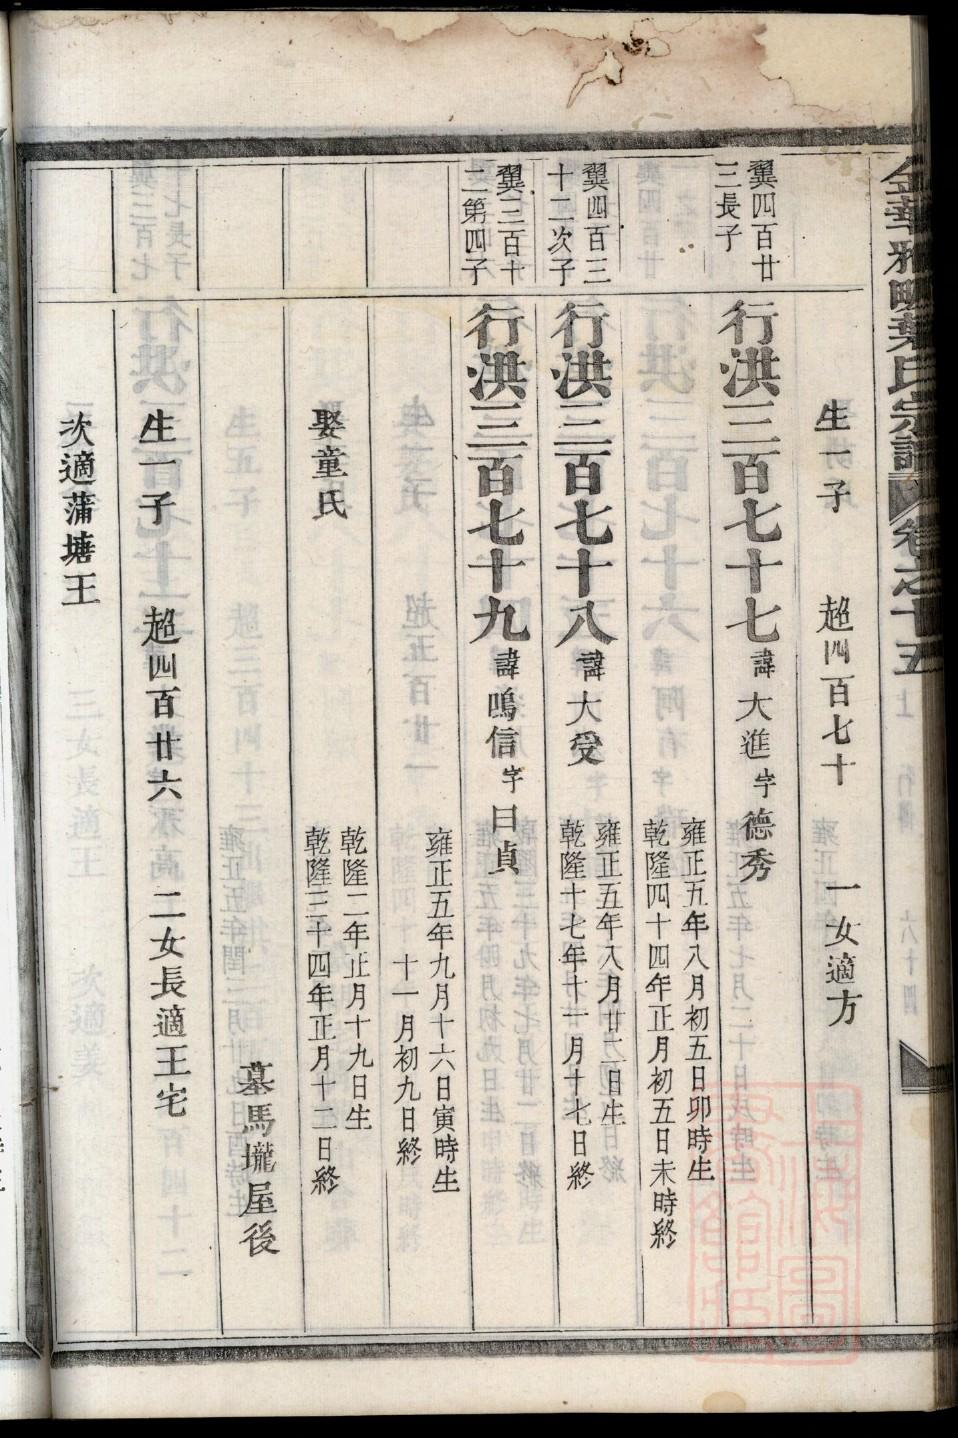 金華雅畈葉氏宗譜 卷之十五
生一子 超四百七十 一女適方
翼四百廿三長子
行洪三百七十七 諱大進 字德秀
雍正五年八月初五日卯時生
乾隆四十四年正月初五日未時終
翼四百三十二次子
行洪三百七十八 諱大受
雍正五年八月廿六日生
乾隆十七年十一月十七日終
翼三百十二第四子
行洪三百七十九 諱鳴信 字曰貞
雍正五年九月十六日寅時生
十一月初九日終
娶童氏
乾隆二年正月十九日生
乾隆三十四年正月十二日終
墓馬壠屋後
生一子 超四百廿六 二女長適王宅
次適蒲塘王